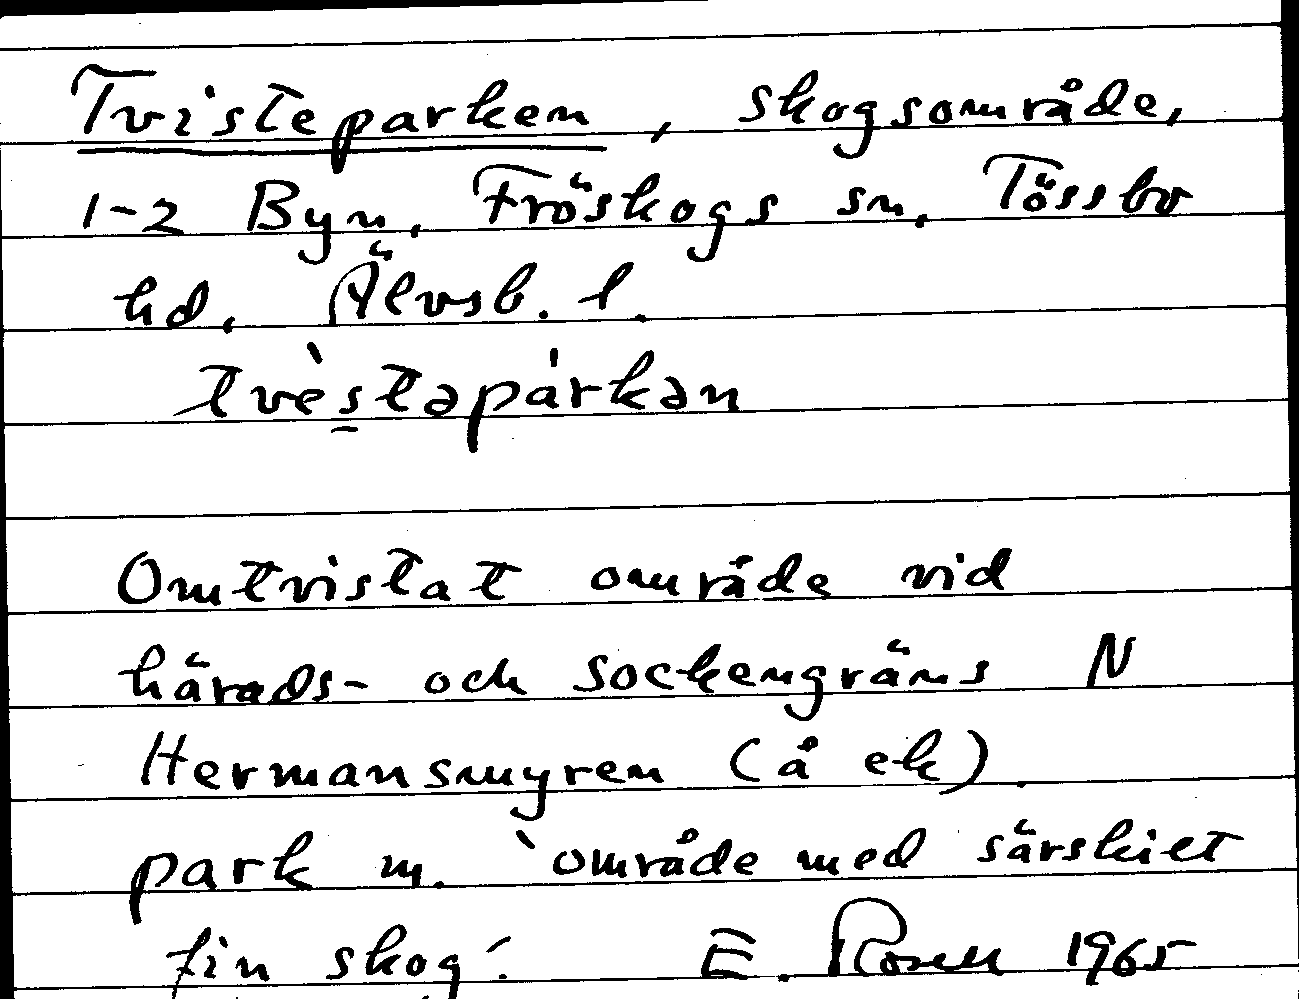 Tvisteparken, skogsområde,
1-2 Byn, Fröskogs sn, Tössbo
hd, Älvsb. l.
tvèstəpárkən
Omtvistat område vid
härads- och sockengräns N
Hermansmyren (å ek).
park m. `område med särskilt
fin skog´. E. Rosell 1965